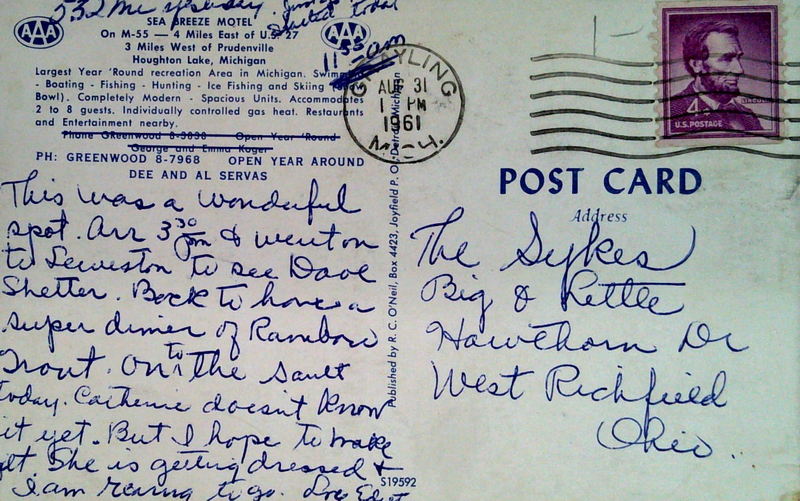 532 mi yesterday.
started today
11 55 am
AAA
AAA
SEA BREEZE MOTEL
On M-55 — 4 Miles East of U.S. 27
3 Miles West of Prudenville
Houghton Lake, Michigan
Largest Year 'Round recreation Area in Michigan. Swimming
- Boating - Fishing - Hunting - Ice Fishing and Skiing
Bowl). Completely Modern - Spacious Units. Accommodates
2 to 8 guests. Individually controlled gas heat. Restaurants
and Entertainment nearby.
Phone GReenwood 8-3838 Open Year 'Round
George and Emma Koger
PH: GREENWOOD 8-7968 OPEN YEAR AROUND
DEE AND AL SERVAS
This was a wonderful
spot. Arr 3 30 pm & went on
to Lewiston to see Dave
Shetter. Back to have a
super dinner of Rainbow
Trout. On to the Sault
today. Catherine doesn't know
it yet. But I hope to make
it. She is getting dressed &
I am raring to go. Love
Published by R. C. O'Neil, Box 4423, Joyfield P. O., Detroit, Michigan
S19592
GRAYLING
AUG 31
1 PM
1961
MICH.
4¢
LINCOLN
U.S. POSTAGE
POST CARD
Address
The Sykes
Big & Little
Hawthorn Dr
West Richfield
Ohio.